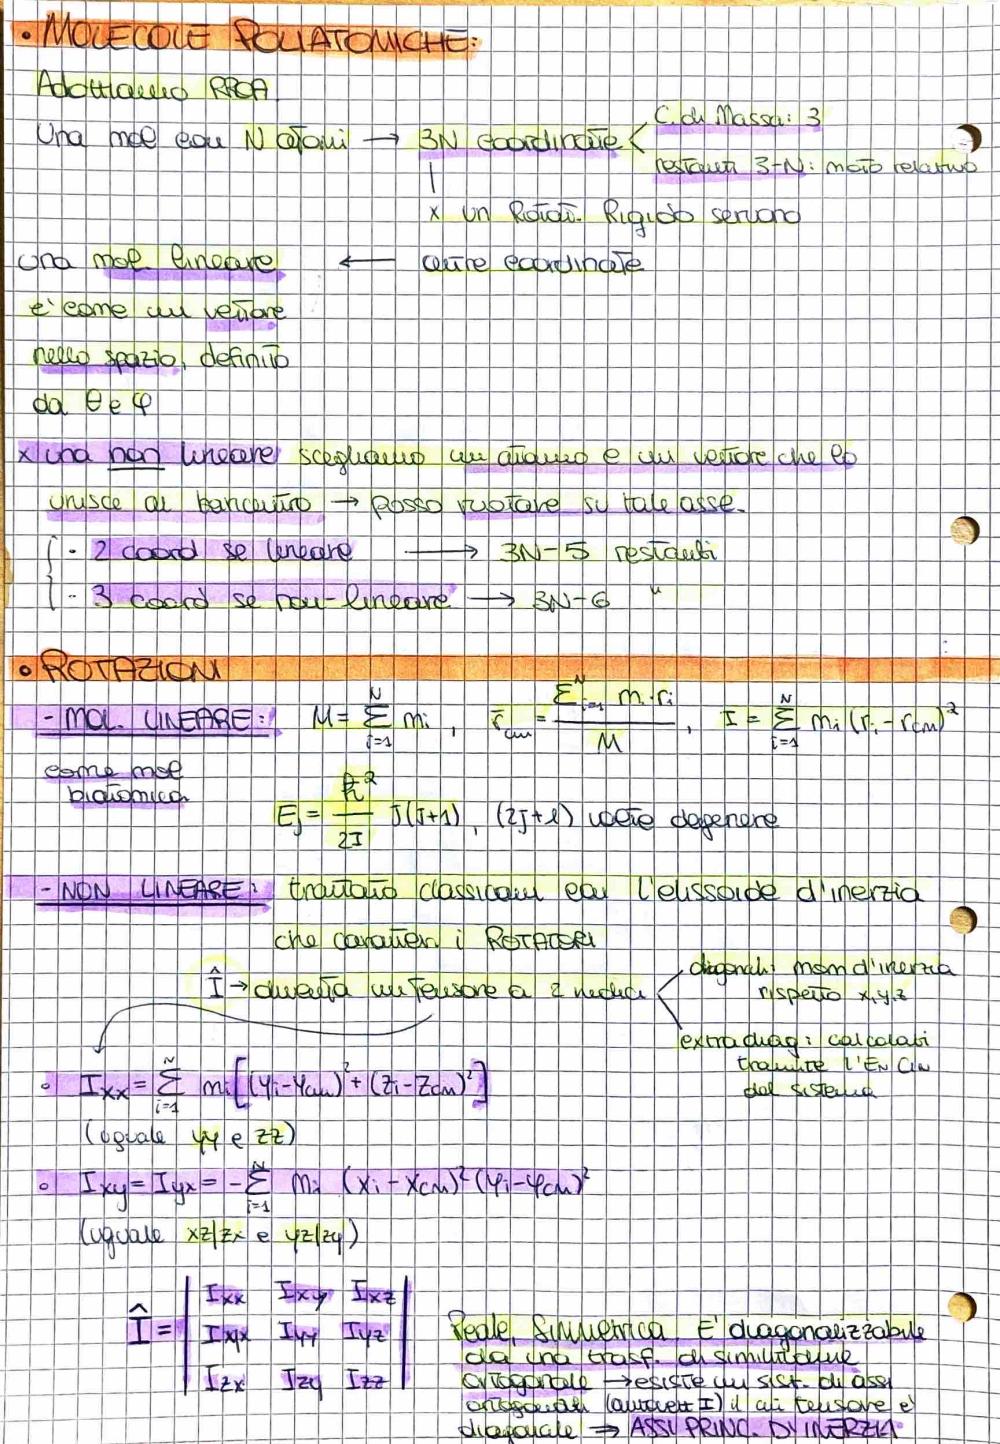 • MOLECOLE POLIATOMICHE:
Adottiamo RROA.
Una mol con N atomi → 3N coordinate < C. di Massa: 3
restanti 3-N: moto relativo
x un Rotat. Rigido servono
una mol lineare ← altre coordinate
e' come un vettore
nello spazio, definito
da θ e φ
x una non lineare scegliamo un atomo e un vettore che lo
unisce al baricentro → posso ruotare su tale asse.
· 2 coord se lineare → 3N-5 restanti
· 3 coord se non-lineare → 3N-6 "
• ROTAZIONI
- MOL. LINEARE: M = Σ_{i=1}^{N} m_i , r̄_cm = Σ_{i=1}^{N} m_i·r_i / M , I = Σ_{i=1}^{N} m_i (r_i - r_CM)²
come mol
biatomica
E_J = ħ²/2I J(J+1), (2J+1) volte degenere
- NON LINEARE: trattato classicam con l'elissoide d'inerzia
che caratter. i ROTATORI
Î → diventa un tensore a 2 indici < diagonali: mom d'inerzia
rispetto x,y,z
extradiag: calcolati
tramite l'EN CIN
del sistema
∘ I_xx = Σ_{i=1}^{N} m_i [(y_i-y_CM)² + (z_i-z_CM)²]
(uguale yy e zz)
∘ I_xy = I_yx = -Σ_{i=1}^{N} m_i (x_i - x_CM)² (y_i - y_CM)²
(uguale xz/zx e yz/zy)
Î = | I_xx I_xy I_xz |
| I_yx I_yy I_yz |
| I_zx I_zy I_zz |
Reale, Simmetrica. E' diagonalizzabile
da una trasf. di similitudine
ortogonale → esiste un sist. di assi
ortogonali (autovett I) il cui tensore e'
diagonale → ASSI PRINC. DI INERZIA